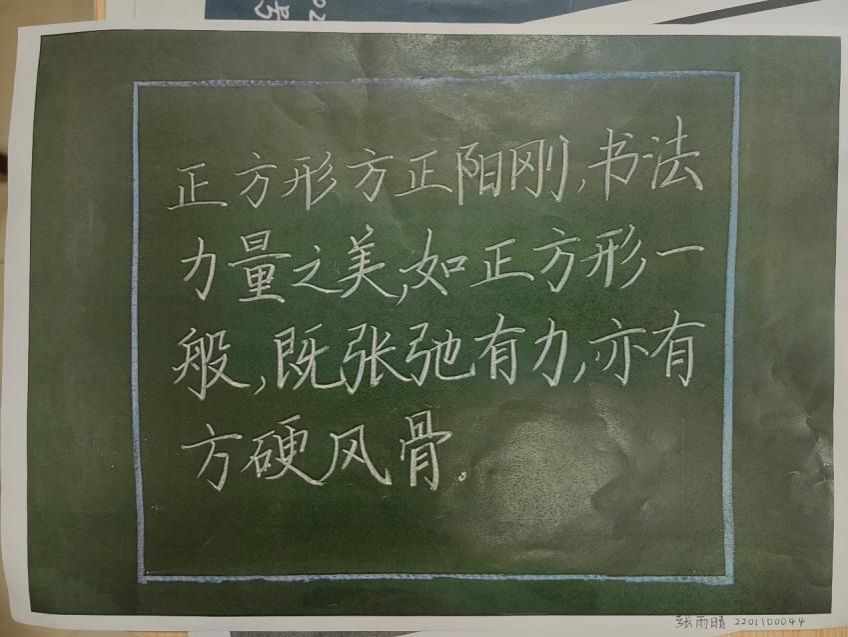 正方形方正阳刚,书法
力量之美,如正方形一
般,既张弛有力,亦有
方硬风骨。
张雨晴 2201100044